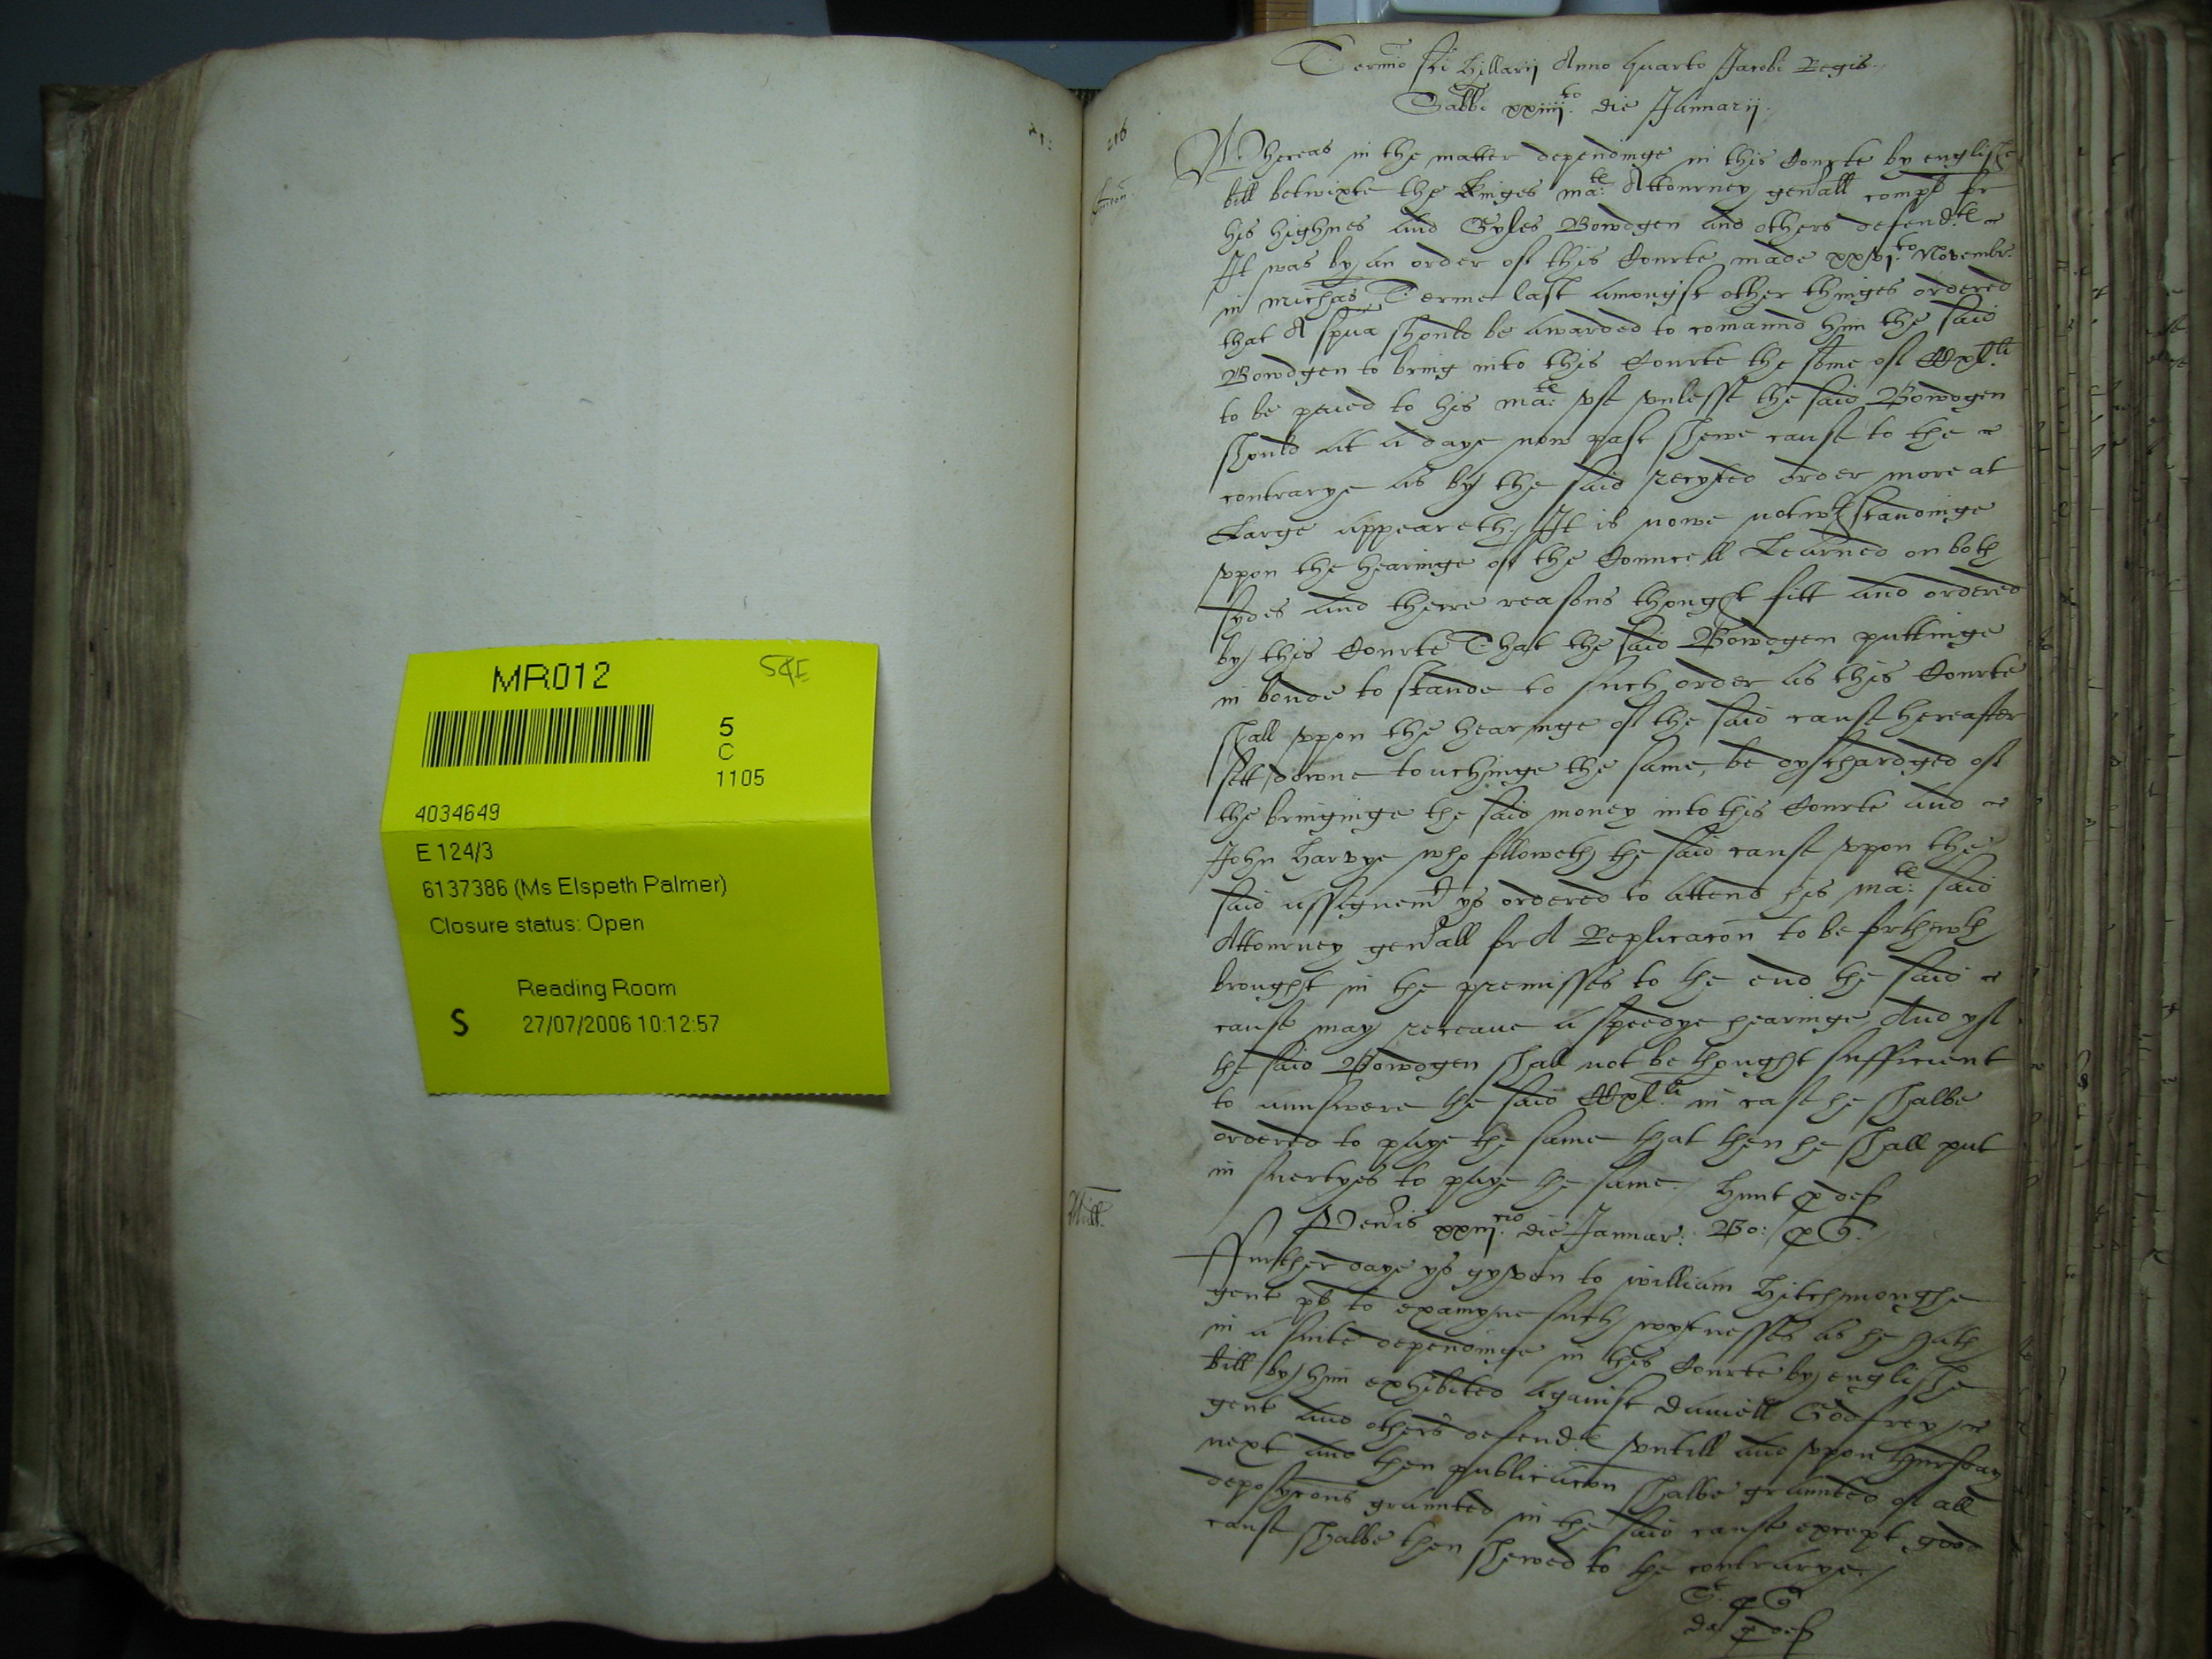 MR012
5
C
1105
4034649
E 124/3
6137386 (Ms Elspeth Palmer)
Closure status: Open
Reading Room
S 27/07/2006 10:12:57
216
Termio Sci Hillarij Anno quarto Jacobi Regis
Sabbi xxiiijto die Januarij
Whereas in the matter dependinge in this Courte by englishe
bill betwixte the Kinges mate Attourney genrall compt for
his highnes and Gyles Bowdgen and others defendtes
It was by an order of this Courte made xxvjto Novembr
in Michas Terme last amongst other thinges ordered
that A spua should be awarded to comaund him the said
Bowdgen to bring into this Courte the some of CCxlli
to be paied to his mates use unlesse the said Bowdgen
should at a daye now past shewe cause to the
contrarye as by the said recyted order more at
Large appeareth. It is nowe notwthstandinge
upon the hearinge of the Councell Learned on both
sydes and theire reasons thought fitt and ordered
by this Courte That the said Bowdgen puttinge
in bonde to stande to such order as this Courte
shall upon the hearinge of the said cause hereafter
sett downe touchinge the same, be dyschardged of
the bringinge the said money into this Courte and
John Harvye who followeth the said cause upon the
said assignemt ys ordered to attend his mates said
Attourney genrall for A Replicacon to be forthwth
brought in the premisses to the end the said
cause may receave a speedye hearinge And yf
the said Bowdgen shall not be thought sufficient
to aunswere the said CCxlli in case he shalbe
ordered to paye the same that then he shall put
in suertyes to paye the same. Hunt p def
Venis xxiijcio die Januar: Bo: p Q
Further daye ys gyven to William Hitchmoughe
gent pt to examyne such wytnesses as he hath
in a suite dependinge in this Courte by englishe
bill by him exhibited against Daniell Godfrey
gent and others defendtes untill and upon thursday
next and then publicacon shalbe graunted of all
deposycons graunted in the said cause except good
cause shalbe then shewed to the contrarye
p Q
p def